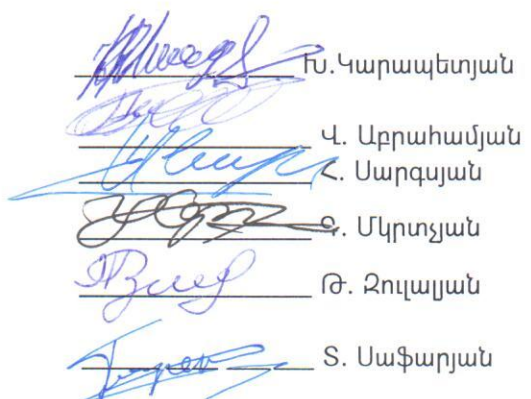 Խ.Կարապետյան
Վ. Աբրահամյան
Հ. Սարգսյան
Գ. Մկրտչյան
Թ. Զուլալյան
Տ. Սաֆարյան